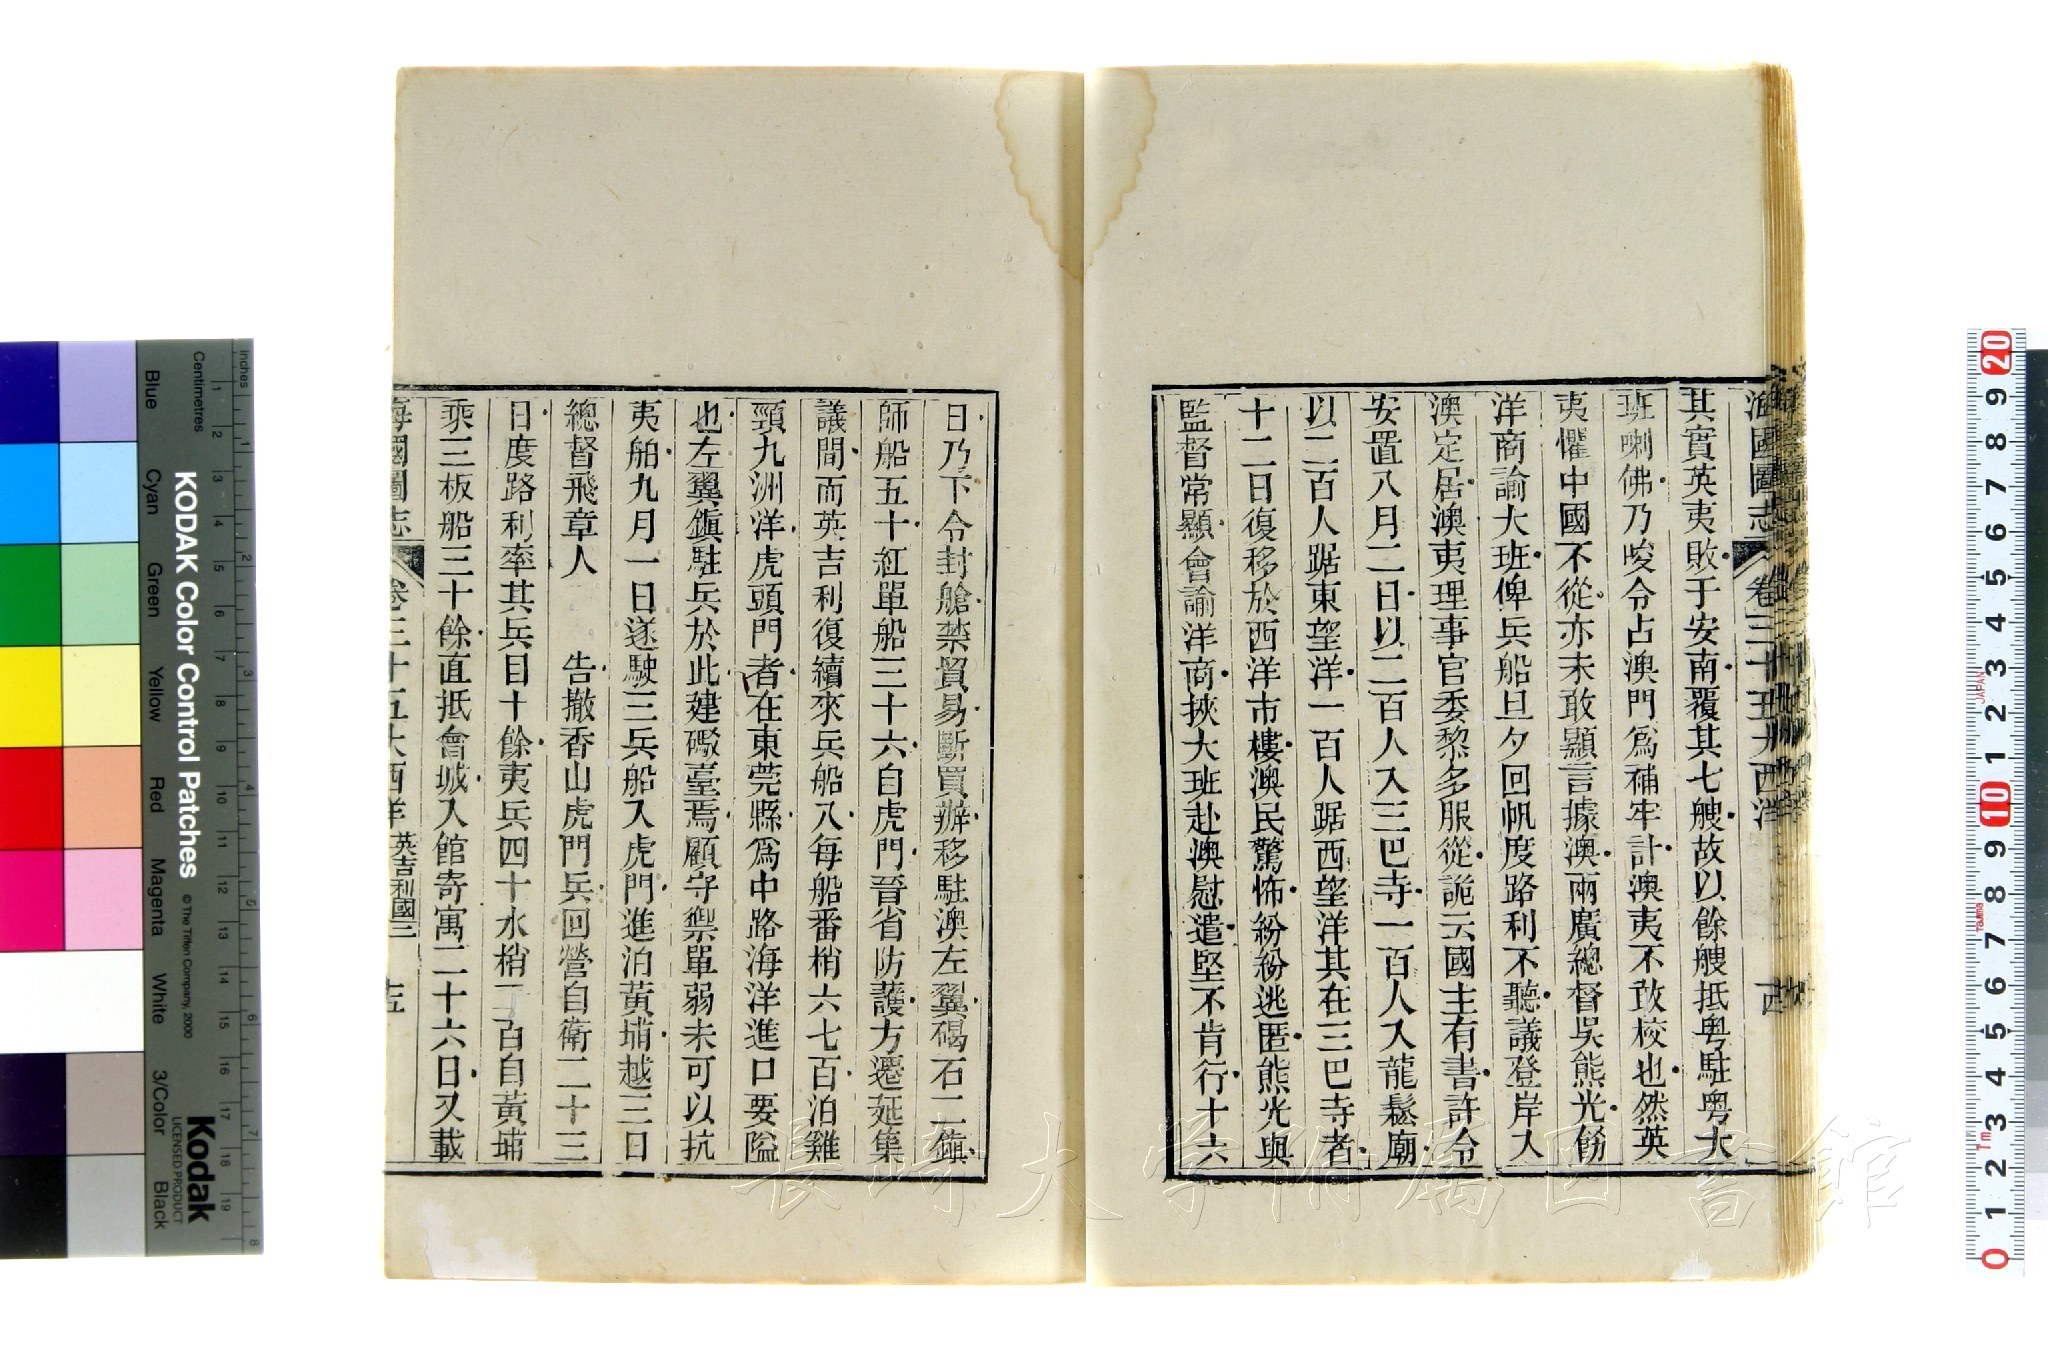 海國圖志 卷三十五大西洋
其實英夷敗于安南覆其七艘故以餘艘抵粤駐粤大
班喇佛乃唆令占澳門爲補牢計澳夷不敢校也然英
夷懼中國不從亦未敢顯言據澳兩廣總督吳熊光飭
洋商諭大班俾兵船旦夕回帆度路利不聽議登岸入
澳定居澳夷理事官委黎多服從詭云國主有書許令
安置八月二日以二百人入三巴寺一百人入龍鬆廟
以二百人踞東望洋一百人踞西望洋其在三巴寺者
十二日復移於西洋市樓澳民驚怖紛紛逃匿熊光與
監督常顯會諭洋商挾大班赴澳慰遣堅不肯行十六
日乃下令封艙禁貿易斷買辦移駐澳左翼碣石二鎮
師船五十紅單船三十六自虎門晉省防護方遷延集
議間而英吉利復續來兵船八每船番梢六七百泊雞
頸九洲洋虎頭門者在東莞縣爲中路海洋進口要隘
也左翼鎮駐兵於此建礮臺焉顧守禦單弱未可以抗
夷舶九月一日遂駛三兵船入虎門進泊黃埔越三日
總督飛章人 告撤香山虎門兵回營自衛二十三
日度路利率其兵目十餘夷兵四十水梢二百自黃埔
乘三板船三十餘直抵會城入館寄寓二十六日又載
海國圖志 卷三十五大西洋 英吉利國三 十五
KODAK Color Control Patches
© The Tiffen Company, 2000
Kodak
LICENSED PRODUCT
Blue Cyan Green Yellow Red Magenta White 3/Color Black
Inches
Centimetres
1 2 3 4 5 6 7 8 9 10 11 12 13 14 15 16 17 18 19
JAPAN
20 9 8 7 6 5 4 3 2 1 10 9 8 7 6 5 4 3 2 1 0
長崎大学附属図書館